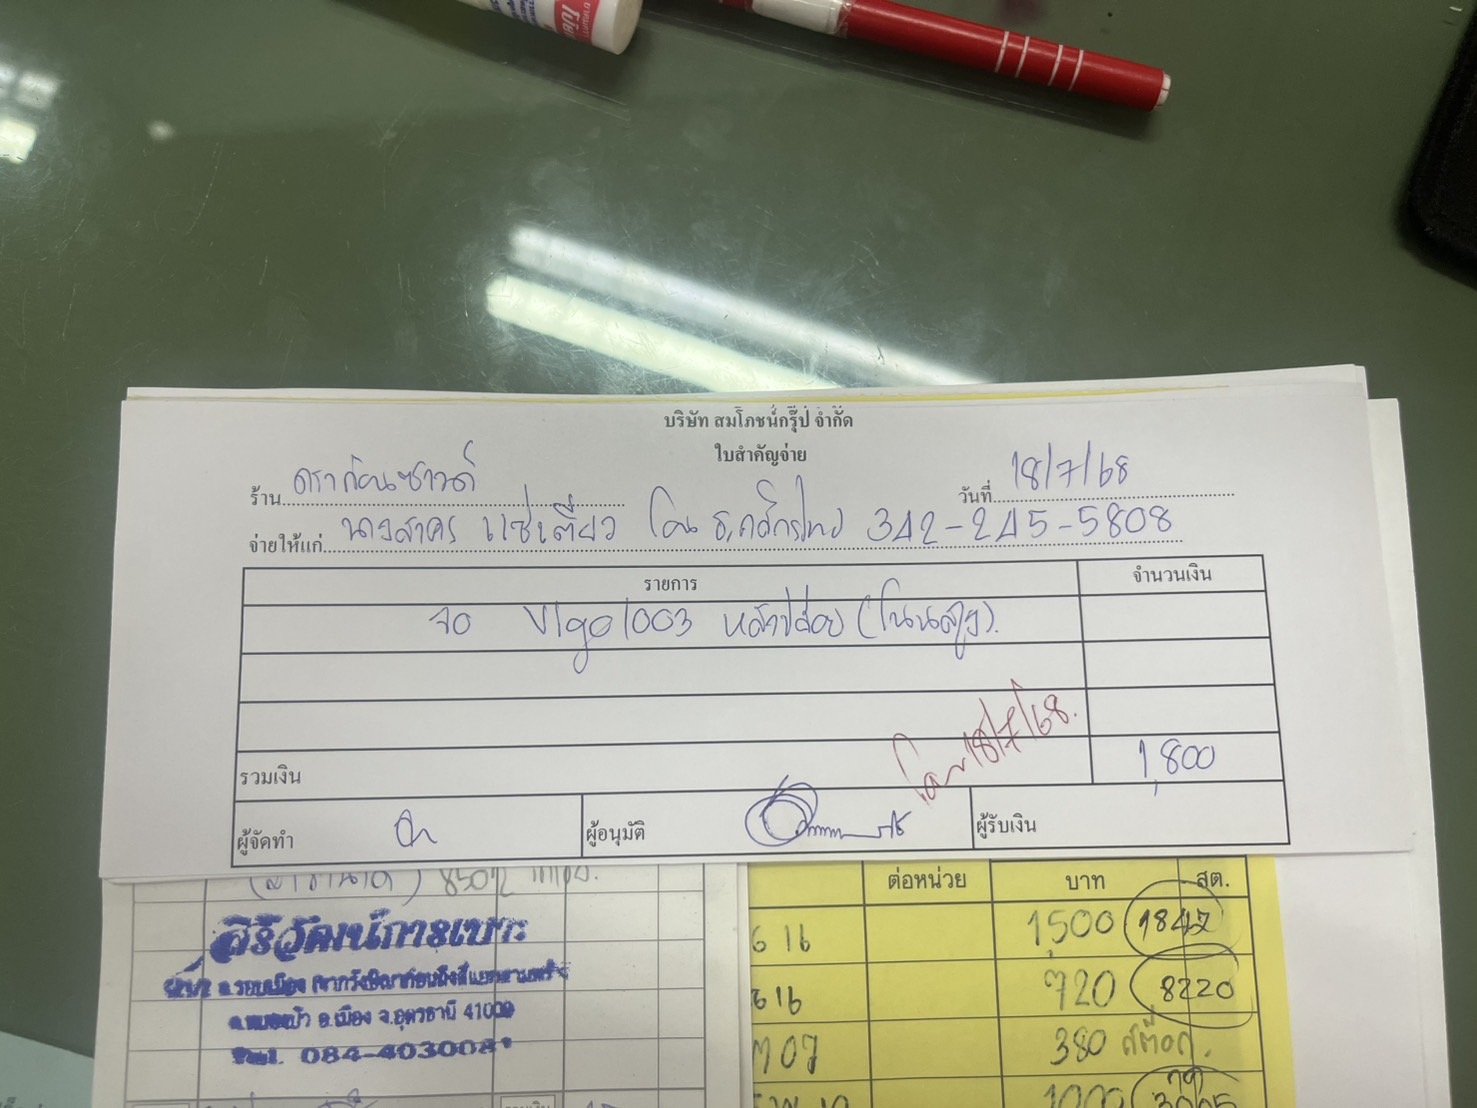 บริษัท สมโภชน์กรุ๊ป จำกัด
ใบสำคัญจ่าย
ร้าน ดราก้อนซาวด์ วันที่ 18/7/68
จ่ายให้แก่ นางสาคร แซ่เตียว โอน ธ.กสิกรไทย 342-245-5808
รายการ จำนวนเงิน
จอ Vigo/003 หล้าปล่อย (โนนสูง).
โอน 18/7/68.
รวมเงิน 1,800
ผู้จัดทำ ผู้อนุมัติ ผู้รับเงิน
850
ต่อหน่วย บาท สต.
สิริวัฒน์การเบาะ
616 1500 1842
ต.หนองบัว อ.เมือง จ.อุดรธานี 41000
616 720 8220
084-403008
07 380 สต๊อก.
1000